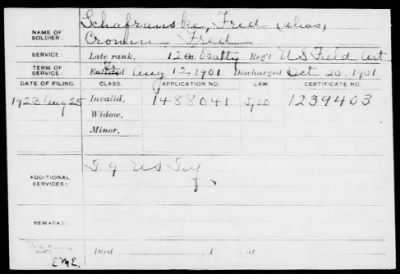 NAME OF SOLDIER: Schafranske, Fred (alias)
Cronin Fred
SERVICE: Late rank, 12 Co Battly Reg't U S Field Art
TERM OF SERVICE: Enlisted Aug 12, 1901 Discharged Oct 20, 1901
DATE OF FILING. CLASS. APPLICATION NO. LAW CERTIFICATE NO.
1923 Aug 25 Invalid, 1488041 1239403
Widow,
Minor,
ADDITIONAL SERVICES:
REMARKS:
Died , 1 , at